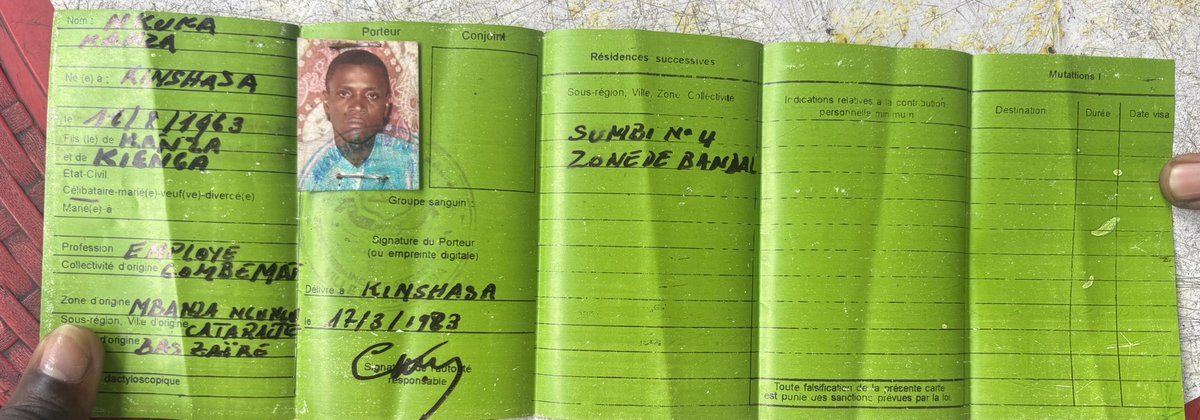 Nom : NKUKA
MANZA
Né (e) à : KINSHASA
le 16/8/1963
Fils (le) de MANZA
et de KIENGA
Etat-Civil
Célibataire-marié(e)-veuf(ve)-divercé(e)
Marié(e)-à
Profession EMPLOYE
Collectivité d'origine GOMBEMAT
Zone d'origine MBANZA
Sous-région, Ville d'origine CATARACTE
d'origine BAS ZAÏRE
dactyloscopique
Porteur
Conjoint
Groupe sanguin :
Signature du Porteur
(ou empreinte digitale)
Délivré à KINSHASA
le 17/3/1983
Signature de l'autorité
responsable
Résidences successives
Sous-région, Ville, Zone, Collectivité
SUMBI N° 4
ZONE DE BANDAL
Indications relatives à la contribution
personnelle minimum
Toute falsification de la présente carte
est punie des sanctions prévues par la loi.
Mutattions I
Destination
Durée
Date visa